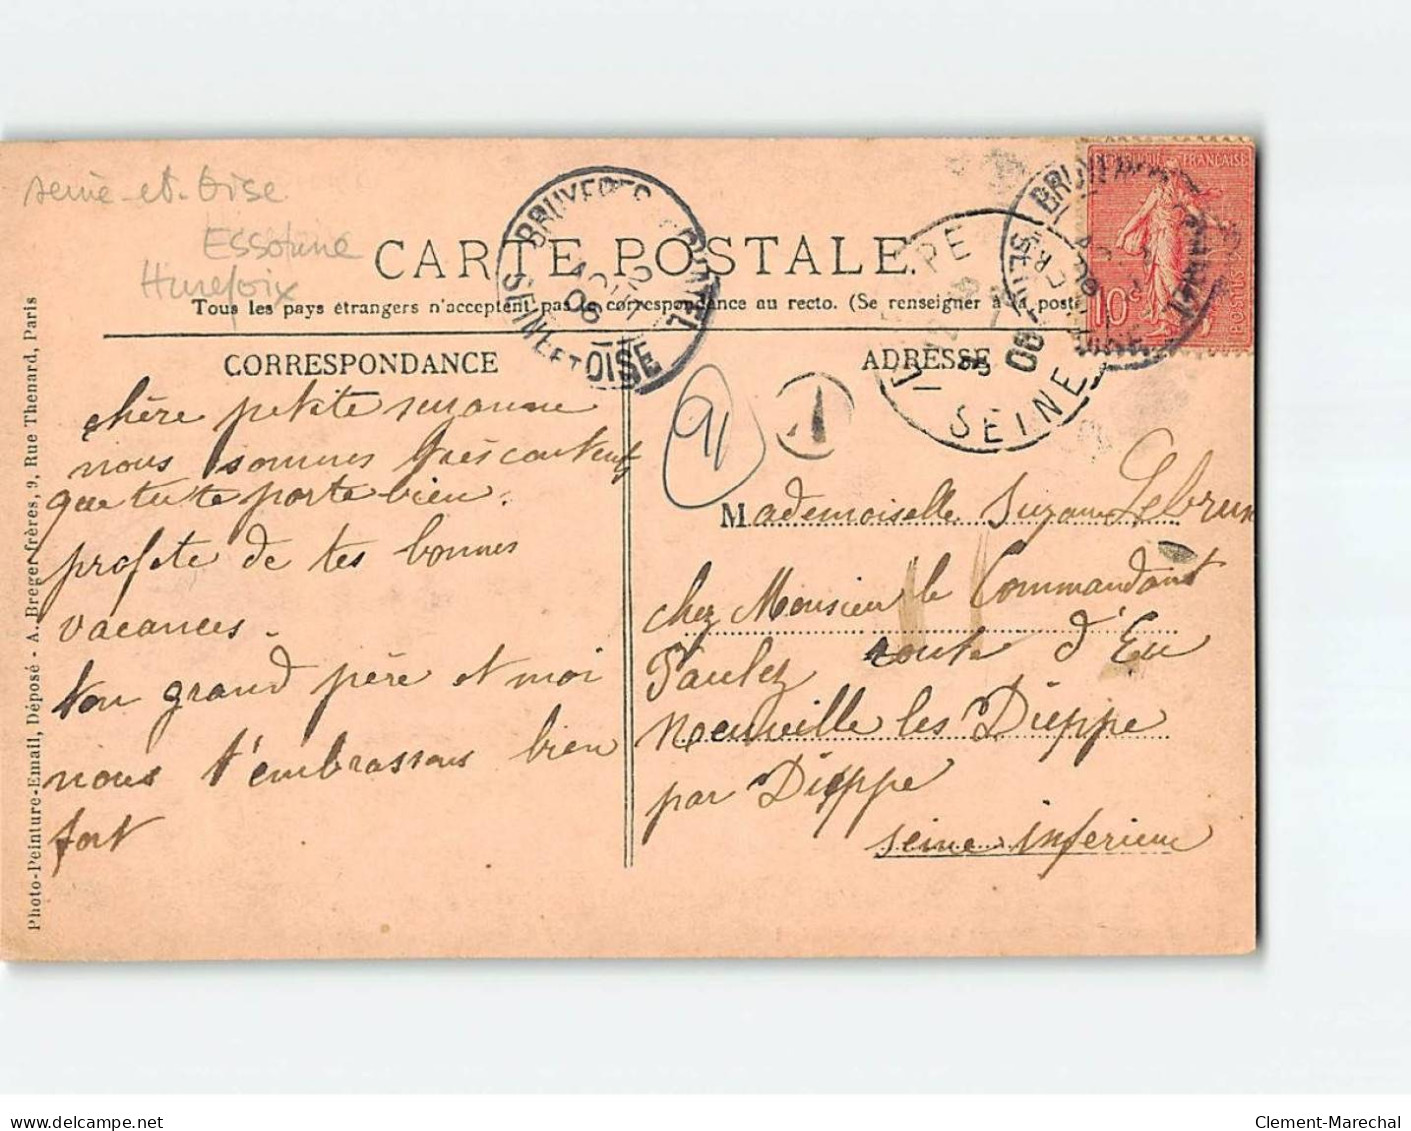 seine-et-Oise
Essonne
Hurepoix
CARTE POSTALE.
Tous les pays étrangers n'acceptent pas la correspondance au recto. (Se renseigner à la poste
CORRESPONDANCE
chère petite suzanne
nous sommes très contents
que tu te porte bien.
profite de tes bonnes
vacances.
ton grand père et moi
nous t'embrassons bien
fort
BRUYERES
SEINE ET OISE
AOUT
06
91
A
ADRESSE
Mademoiselle Suzanne Lebrun
chez Monsieur le Commandant
Paulez route d'Eu
Neuville les Dieppe
par Dieppe
seine inferieure
SEINE
06
BRUYERES
FRANÇAISE
10c
POSTES
Photo-Peinture-Email, Déposé - A. Breger frères, 9, Rue Thenard, Paris
Clement-Marechal